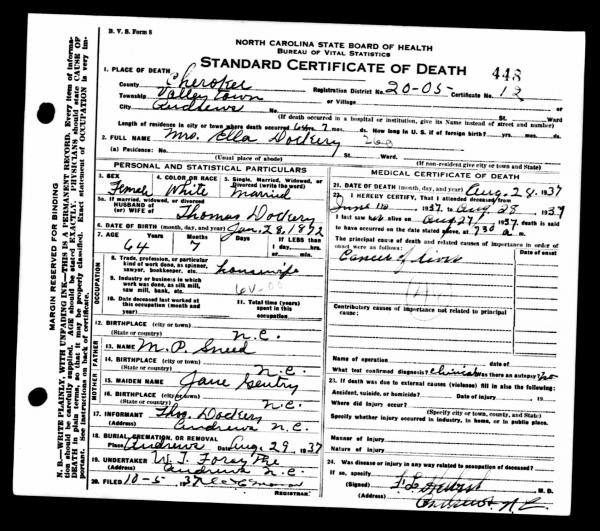 B. V. S. Form 8
NORTH CAROLINA STATE BOARD OF HEALTH
BUREAU OF VITAL STATISTICS
STANDARD CERTIFICATE OF DEATH
443
1. PLACE OF DEATH
County Cherokee Registration District No. 20-05 Certificate No. 12
Township Valley Town or Village or
City Andrews No. St. Ward
(If death occurred in a hospital or institution, give its Name instead of street and number)
Length of residence in city or town where death occurred 64 yrs. 7 mos. ds. How long in U. S. if of foreign birth? yrs. mos. ds.
2. FULL NAME Mrs. Ella Dockery
(a) Residence: No. St. Ward
(Usual place of abode) (If non-resident give city or town and State)
PERSONAL AND STATISTICAL PARTICULARS
3. SEX Female
4. COLOR OR RACE White
5. Single, Married, Widowed, or Divorced (write the word) Married
5a. If married, widowed, or divorced
HUSBAND of
(or) WIFE of Thomas Dockery
6. DATE OF BIRTH (month, day, and year) Jan. 28, 1872
7. AGE Years 64 Months 7 Days If LESS than 1 day, hrs. or min.
OCCUPATION
8. Trade, profession, or particular kind of work done, as spinner, sawyer, bookkeeper, etc. housewife
9. Industry or business in which work was done, as silk mill, saw mill, bank, etc.
10. Date deceased last worked at this occupation (month and year)
11. Total time (years) spent in this occupation
12. BIRTHPLACE (city or town)
(State or country) N.C.
FATHER
13. NAME M. P. Sneed
14. BIRTHPLACE (city or town)
(State or country) N.C.
MOTHER
15. MAIDEN NAME Jane Gentry
16. BIRTHPLACE (city or town)
(State or country) N.C.
17. INFORMANT Thos. Dockery
(Address) Andrews N.C.
18. BURIAL, CREMATION, OR REMOVAL
Place Andrews Date Aug. 29, 1937
19. UNDERTAKER W. T.
(Address) Andrews N.C.
20. FILED 10-5, 37
REGISTRAR.
MEDICAL CERTIFICATE OF DEATH
21. DATE OF DEATH (month, day, and year) Aug. 28, 1937
22. I HEREBY CERTIFY, That I attended deceased from
June 1937, to Aug. 28, 1937
I last saw alive on Aug 27, 1937, death is said
to have occurred on the date stated above, at 7:30 a. m.
The principal cause of death and related causes of importance in order of onset were as follows: Date of onset
Cancer of
Contributory causes of importance not related to principal cause:
Name of operation date of
What test confirmed diagnosis? clinical Was there an autopsy? no
23. If death was due to external causes (violence) fill in also the following:
Accident, suicide, or homicide? Date of injury 19
Where did injury occur?
(Specify city or town, county, and State)
Specify whether injury occurred in industry, in home, or in public place.
Manner of injury
Nature of injury
24. Was disease or injury in any way related to occupation of deceased?
If so, specify
(Signed) M. D.
(Address) Andrews N.C.
MARGIN RESERVED FOR BINDING
N. B.—WRITE PLAINLY, WITH UNFADING INK—THIS IS A PERMANENT RECORD. Every item of information should be carefully supplied. AGE should be stated EXACTLY. PHYSICIANS should state CAUSE OF DEATH in plain terms, so that it may be properly classified. Exact statement of OCCUPATION is very important. See instructions on back of certificate.